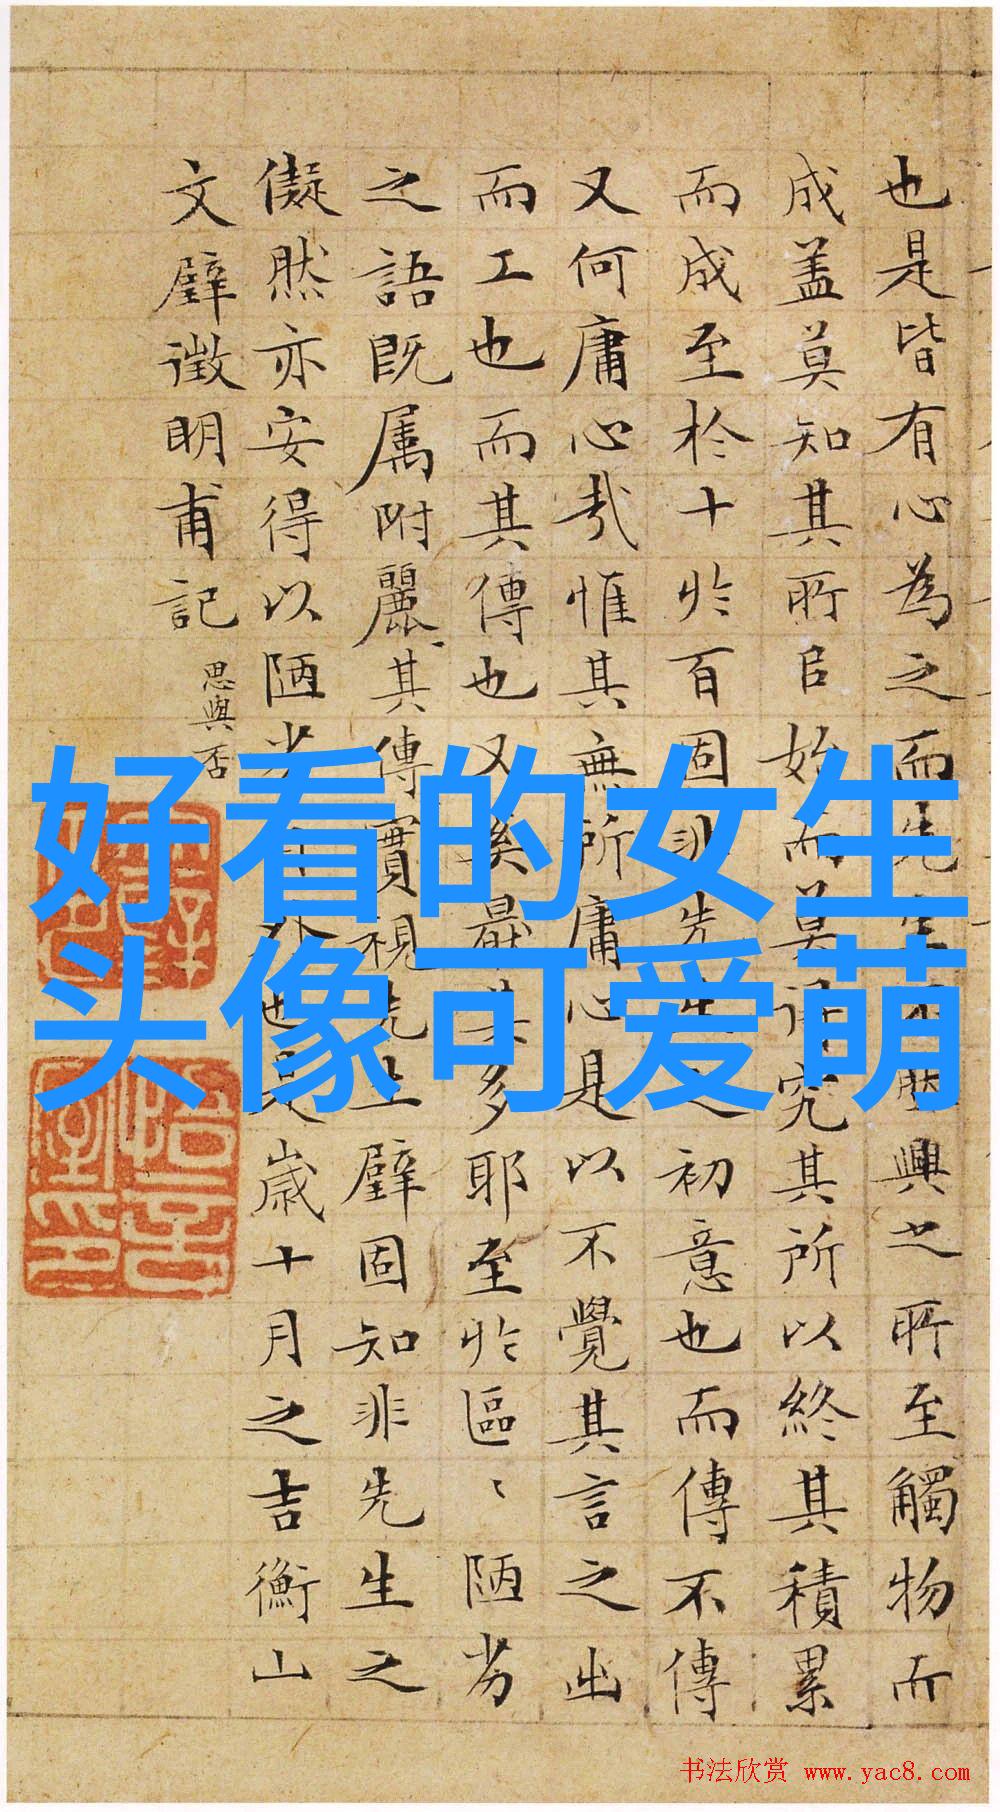 好看的女生
头像可爱萌
也是皆有心為之而先生不然興之所至觸物而
成盖莫知其所㠯始而莫得究其所以終其積累
而成至於十於百固非先生之初意也而傳不傳
又何庸心哉惟其無所庸心是以不覺其言之出
而工也而其傳也又奚最其多耶至於區〻陋劣
之語既属附麗其傳實視先生璧固知非先生之
儗然亦安得以陋劣自外也歲十月之吉衡山
文璧徵明甫記
思與否
书法欣赏 www.yac8.com